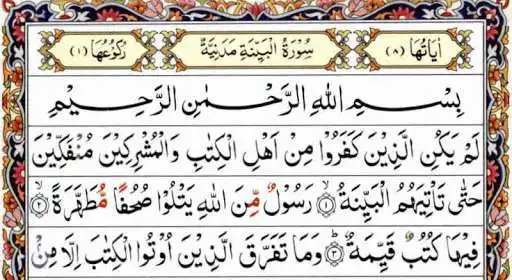 اٰیَاتُهَا (۸) سُوۡرَةُ الۡبَیِّنَةِ مَدَنِیَّةٌ رُکُوۡعُهَا (۱)
بِسۡمِ اللهِ الرَّحۡمٰنِ الرَّحِیۡمِ
لَمۡ یَکُنِ الَّذِیۡنَ کَفَرُوۡا مِنۡ اَهۡلِ الۡکِتٰبِ وَالۡمُشۡرِکِیۡنَ مُنۡفَکِّیۡنَ
حَتّٰی تَاۡتِیَهُمُ الۡبَیِّنَةُ ۙ‏﴿۱﴾ رَسُوۡلٌ مِّنَ اللهِ یَتۡلُوۡا صُحُفًا مُّطَهَّرَةً ۙ‏﴿۲﴾
فِیۡهَا کُتُبٌ قَیِّمَةٌ ؕ‏﴿۳﴾ وَمَا تَفَرَّقَ الَّذِیۡنَ اُوۡتُوا الۡکِتٰبَ اِلَّا مِنۡۢ